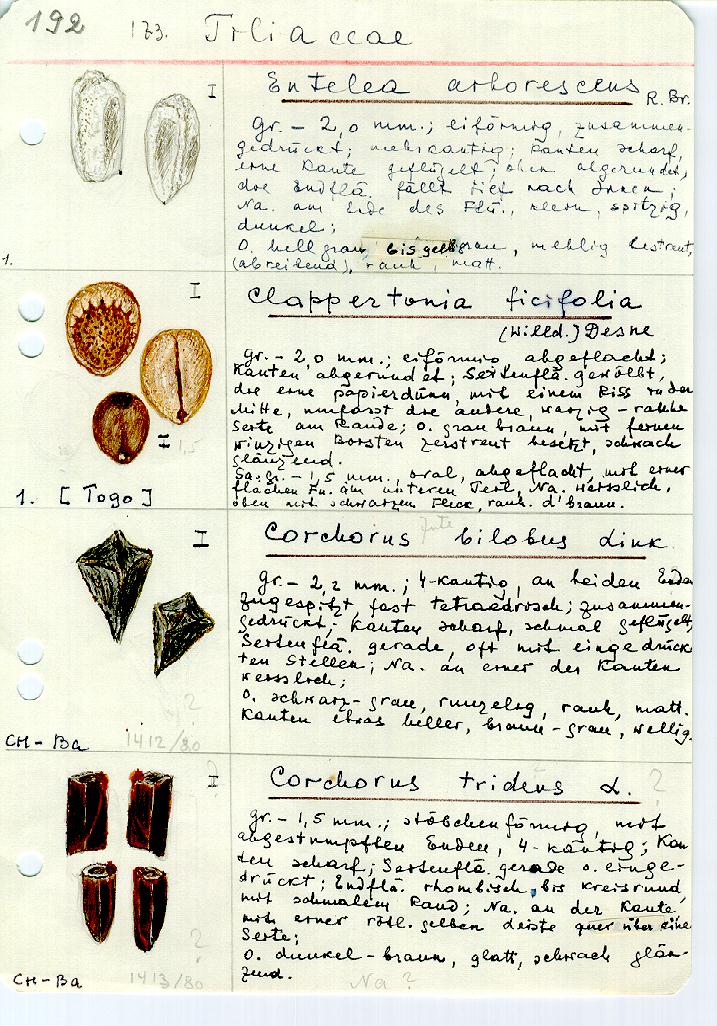 192 173. Tiliaceae
I
Entelea arborescens R. Br.
Gr. – 2,0 mm.; eiförmig, zusammen-
gedrückt; mehrkantig; Kanten scharf,
eine Kante geflügelt, oben abgerundet,
die Endflä. fällt tief nach Innen;
Na. am Ende des Flü., klein, spitzig,
dunkel;
O. hellgrau bis gelbgrau, mehlig bestreut,
(abreibend), rauh, matt.
1.
I
Clappertonia ficifolia
(Willd.) Desne
Gr. – 2,0 mm.; eiförmig abgeflacht;
Kanten abgerundet; Seitenflä. gewölbt,
die eine papierdünn, mit einem Riss in der
Mitte, umfasst die andere, warzig-rauhe
Seite am Rande; O. graubraun, mit feinen
winzigen Borsten zerstreut besetzt, schwach
glänzend.
Sa. gr. – 1,5 mm., oval, abgeflacht, mit einer
flachen Fu. am unteren Teil, Na. weisslich,
oben mit schwarzem Fleck, rauh. d' braun.
II 1,5
1. [Togo]
I
Jute
Corchorus bilobus Link.
Gr. – 2,2 mm.; 4-kantig, an beiden Enden
zugespitzt, fast tetraedrisch; zusammen-
gedrückt; Kanten scharf, schmal geflügelt,
Seitenflä. gerade, oft mit eingedrück-
ten Stellen; Na. an einer der Kanten
weisslich;
O. schwarz-grau, runzelig, rauh, matt.
Kanten etwas heller, braun-grau, wellig.
?
CH-Ba 1412/80
I ?
Corchorus tridens L. ?
Gr. – 1,5 mm.; stäbchenförmig, mit
abgestumpften Enden, 4-kantig; Kan-
ten scharf; Seitenflä. gerade o. einge-
drückt; Endflä. rhombisch bis kreisrund,
mit schmalem Rand; Na. an der Kante,
mit einer rötl. gelben Leiste quer über eine
Seite;
O. dunkel-braun, glatt, schwach glän-
zend.
?
CH-Ba 1413/80 Na ?